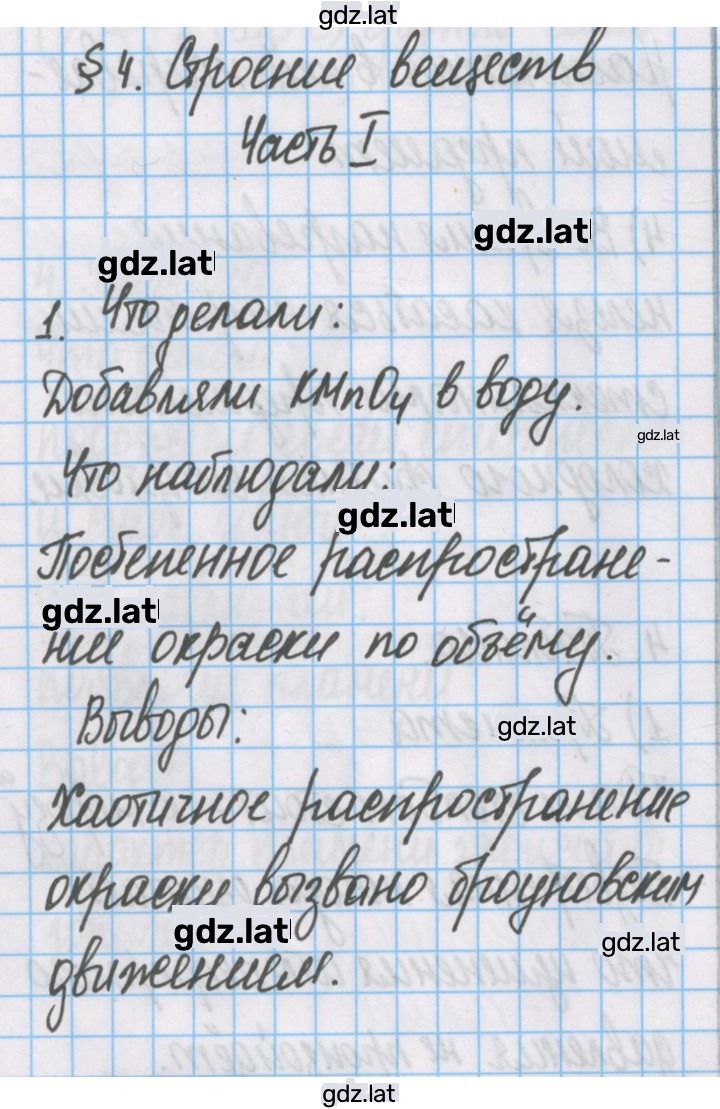 gdz.lat
§ 4. Строение веществ
Часть I
gdz.lat
gdz.lat
1. Что делали:
Добавляли KMnO4 в воду.
gdz.lat
Что наблюдали:
gdz.lat
Постепенное распростране-
gdz.lat
ние окраски по объёму.
Выводы:
gdz.lat
Хаотичное распространение
окраски вызвано броуновским
gdz.lat
gdz.lat
движением.
gdz.lat